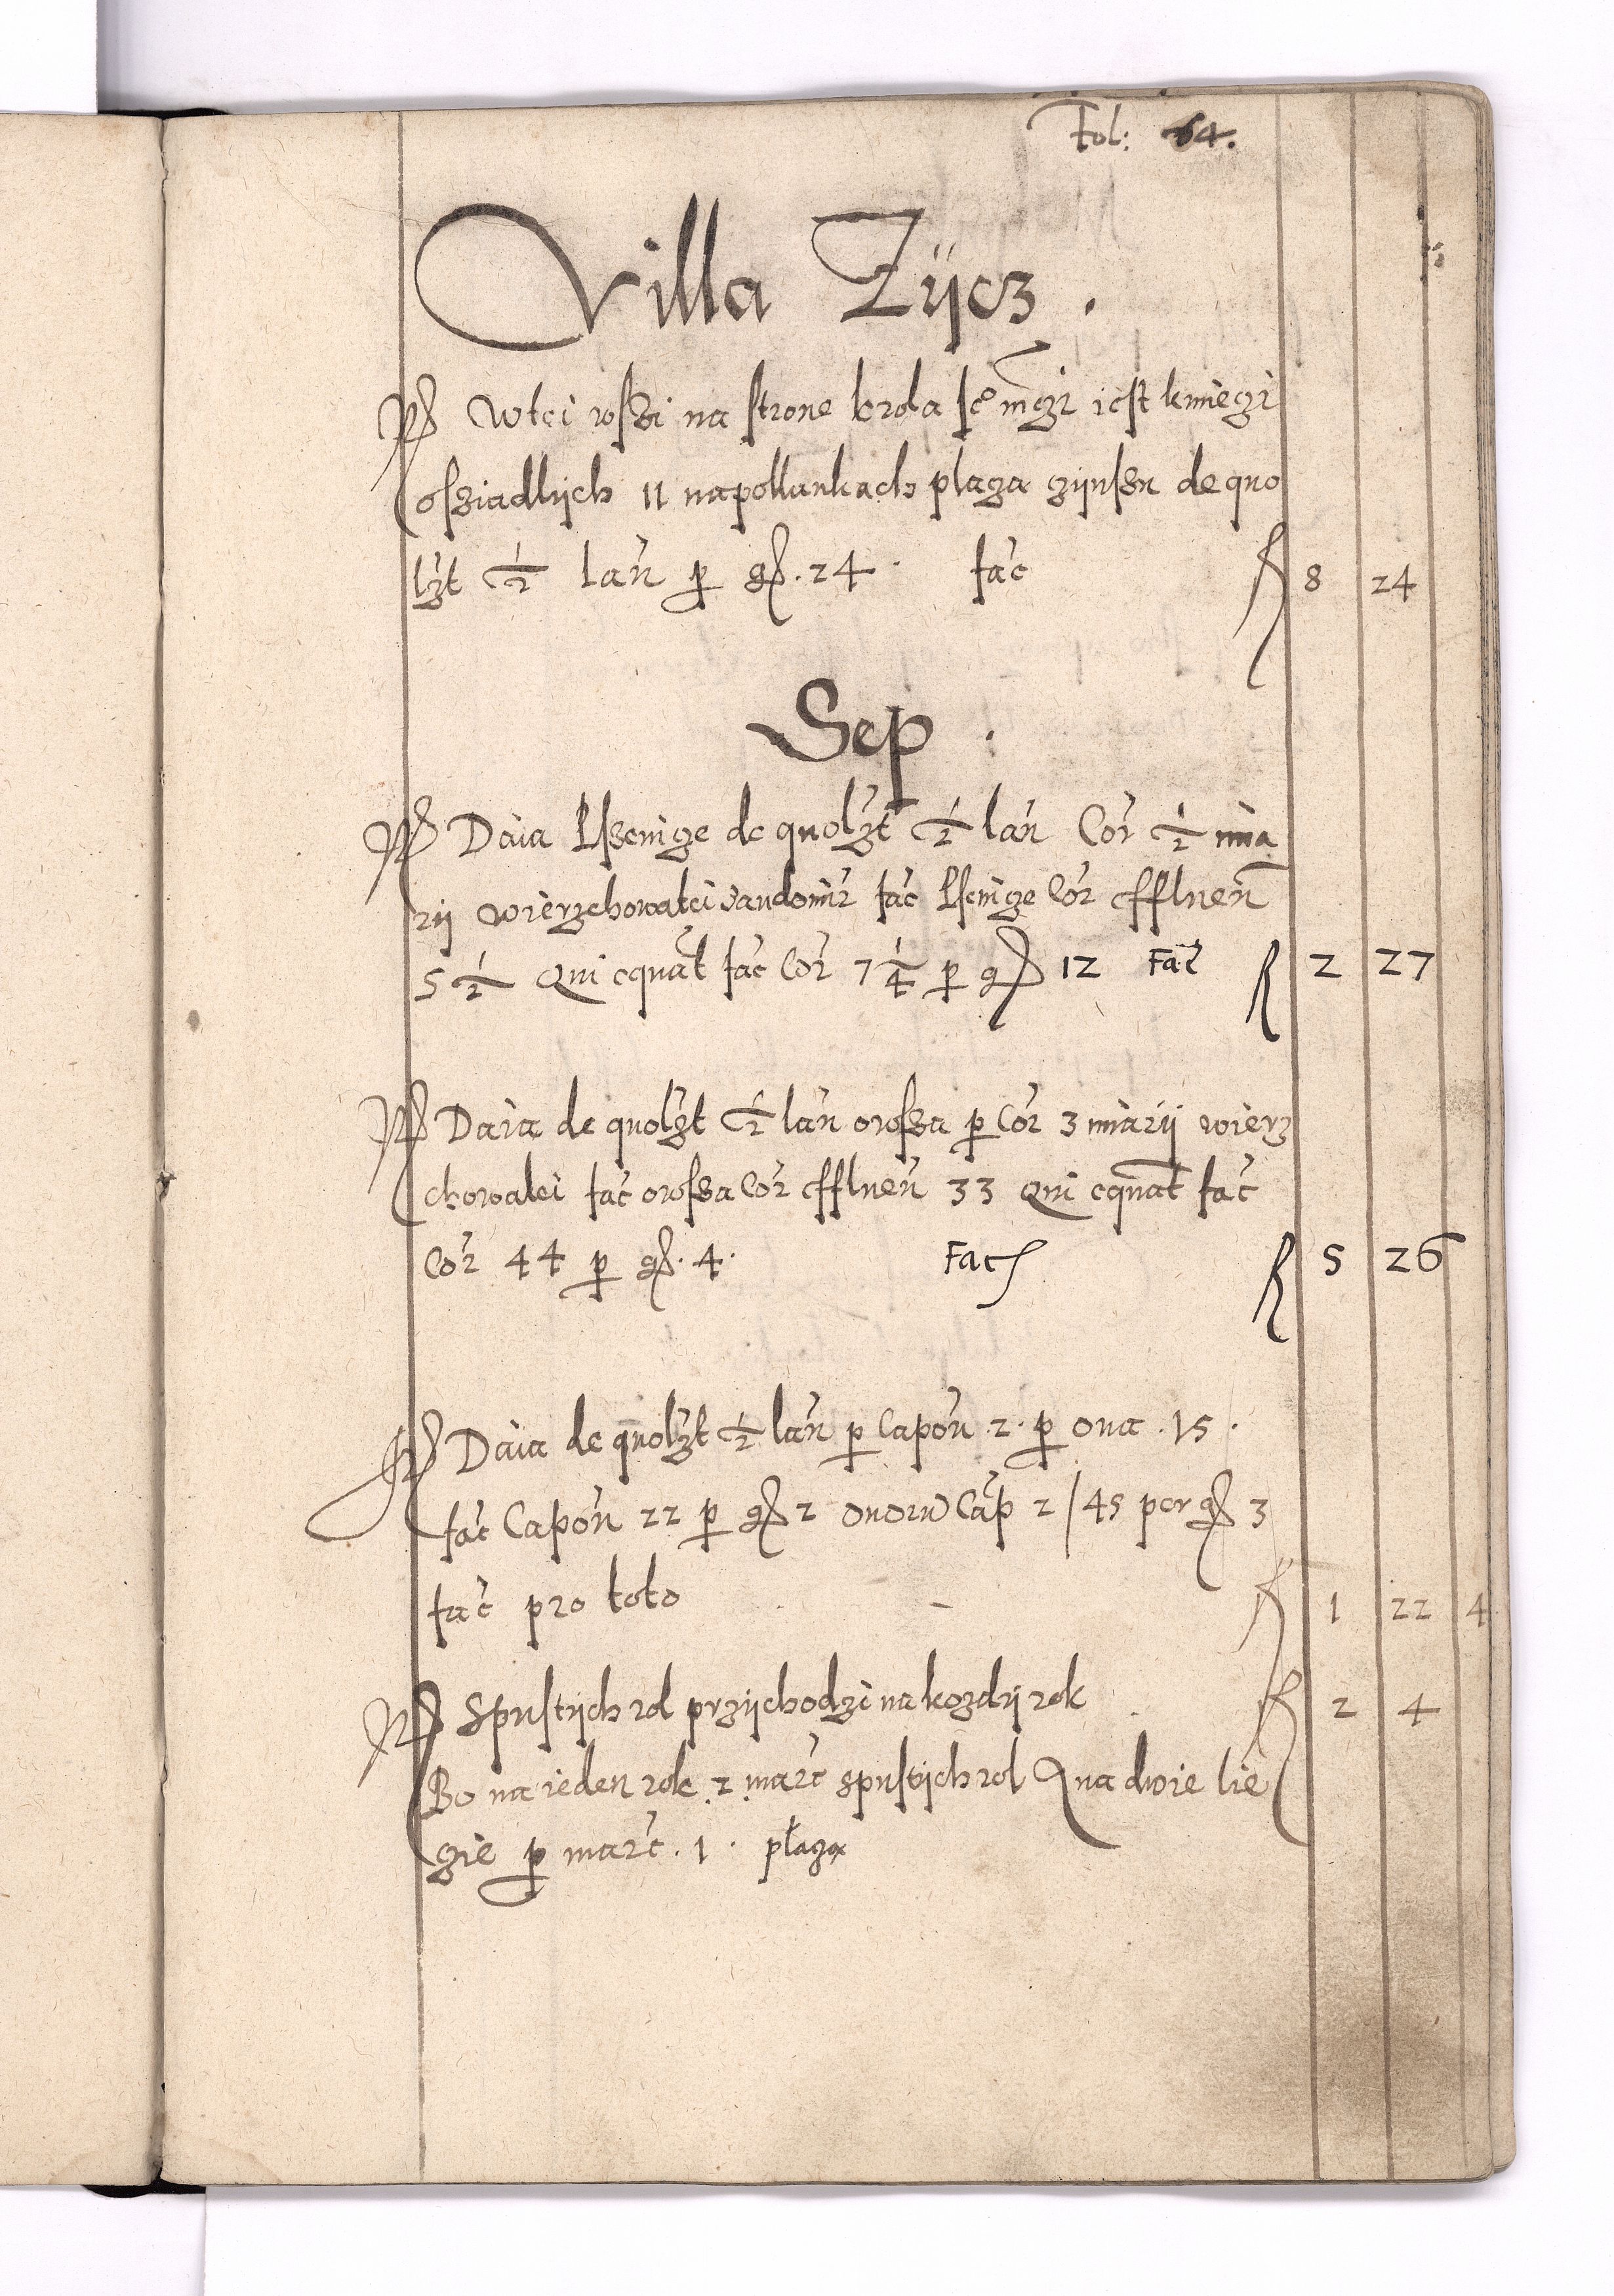 Fol: 64.
Villa Zijcz.
Wtei wsszi na strone krola ieº mczi iest kmieczi
osziadlijch 11 napollankach placza czijnszu de quo
lzt ½ lan̄ p gр. 24. fac̄ 8 24
Sep.
Daia Psenicze de quolzt ½ lan̄ Cor̄ ½ mia
rij wierzchowatei sandomir̄ fac̄ Psenicze Cor̄ effluen̄
5 ½ Qui equat̄ fac̄ Cor̄ 7 ¼ p gр 12 Fac̄ 2 27
Daia de quolzt ½ lan̄ owssa p Cor̄ 3 miarij wierz
chowatei fac̄ owssa Cor̄ effluen̄ 33 Qui equat̄ fac̄
Cor̄ 44 p gр. 4. Fac 5 26
Daia de quolzt ½ lan̄ p Capon̄ 2. p oua. 15.
fac̄ Capon̄ 22 p gр 2 ouorū Cap̄ 2/45 per gр 3
fac̄ pro toto 1 22 4
Spustijch rol przijchodzi na kozdij rok 2 4
Bo na ieden rok 2 marc̄ spustijch rol A na dwie lie
zie p marc̄. 1. placza